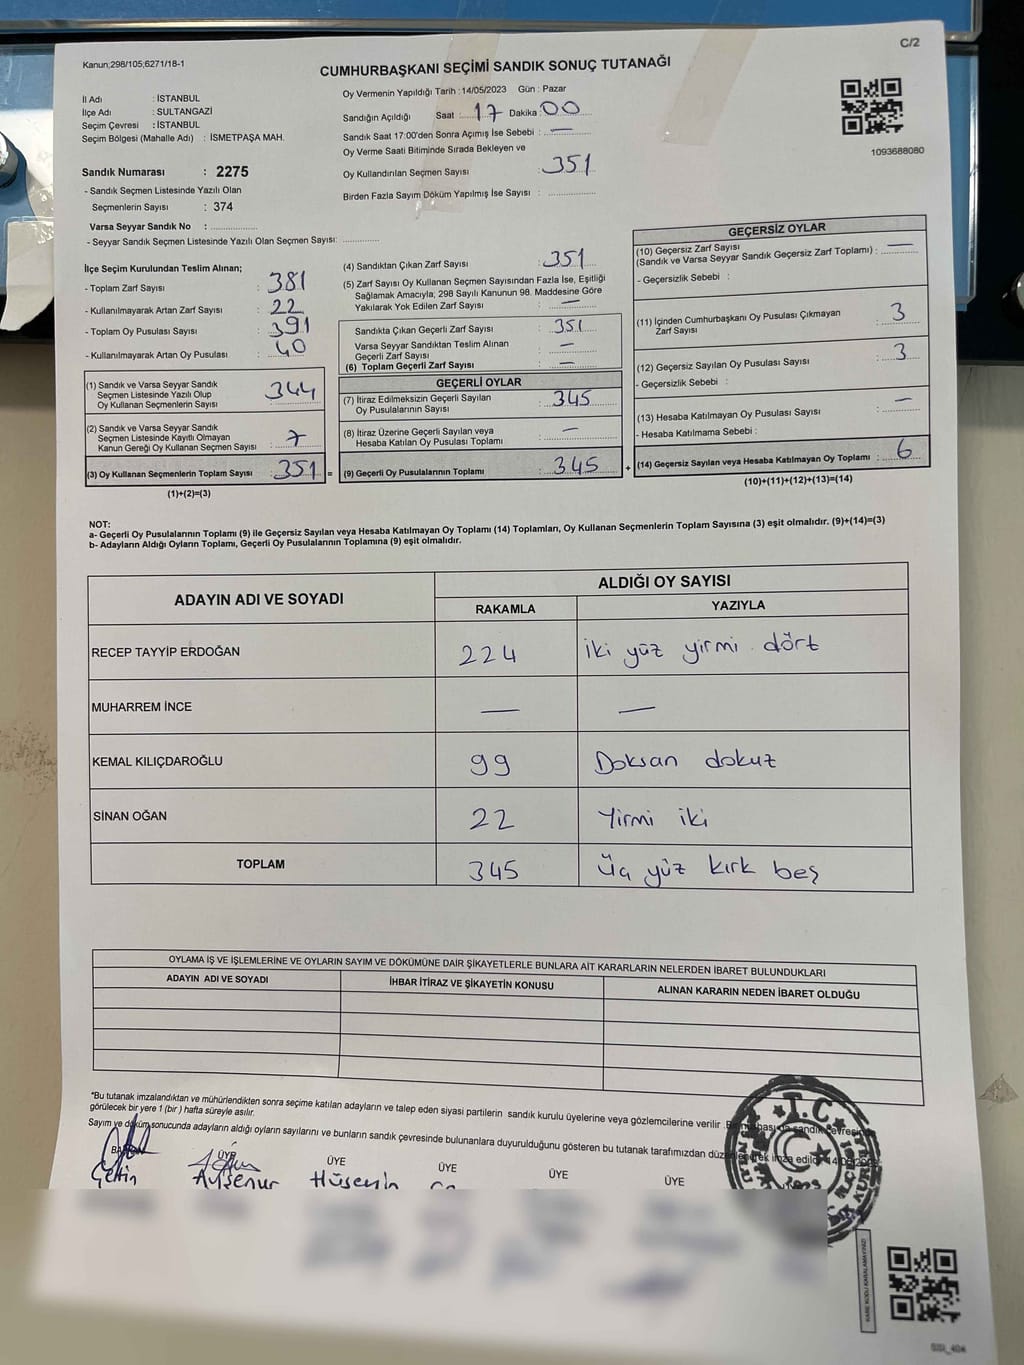 C/2
Kanun;298/105;6271/18-1
CUMHURBAŞKANI SEÇİMİ SANDIK SONUÇ TUTANAĞI
İl Adı : İSTANBUL
İlçe Adı : SULTANGAZİ
Seçim Çevresi : İSTANBUL
Seçim Bölgesi (Mahalle Adı) : İSMETPAŞA MAH.
Oy Vermenin Yapıldığı Tarih : 14/05/2023 Gün : Pazar
Sandığın Açıldığı Saat : 17 Dakika : 00
Sandık Saat 17:00'den Sonra Açımış İse Sebebi : —
Oy Verme Saati Bitiminde Sırada Bekleyen ve
Oy Kullandırılan Seçmen Sayısı : 351
Birden Fazla Sayım Döküm Yapılmış İse Sayısı :
1093688080
Sandık Numarası : 2275
- Sandık Seçmen Listesinde Yazılı Olan
Seçmenlerin Sayısı : 374
Varsa Seyyar Sandık No :
- Seyyar Sandık Seçmen Listesinde Yazılı Olan Seçmen Sayısı:
İlçe Seçim Kurulundan Teslim Alınan;
- Toplam Zarf Sayısı : 381
- Kullanılmayarak Artan Zarf Sayısı : 22
- Toplam Oy Pusulası Sayısı : 391
- Kullanılmayarak Artan Oy Pusulası : 40
(1) Sandık ve Varsa Seyyar Sandık
Seçmen Listesinde Yazılı Olup
Oy Kullanan Seçmenlerin Sayısı : 344
(2) Sandık ve Varsa Seyyar Sandık
Seçmen Listesinde Kayıtlı Olmayan
Kanun Gereği Oy Kullanan Seçmen Sayısı : 7
(3) Oy Kullanan Seçmenlerin Toplam Sayısı : 351 =
(1)+(2)=(3)
(4) Sandıktan Çıkan Zarf Sayısı : 351
(5) Zarf Sayısı Oy Kullanan Seçmen Sayısından Fazla İse, Eşitliği
Sağlamak Amacıyla; 298 Sayılı Kanunun 98. Maddesine Göre
Yakılarak Yok Edilen Zarf Sayısı : —
Sandıkta Çıkan Geçerli Zarf Sayısı : 351
Varsa Seyyar Sandıktan Teslim Alınan
Geçerli Zarf Sayısı : —
(6) Toplam Geçerli Zarf Sayısı : —
GEÇERLİ OYLAR
(7) İtiraz Edilmeksizin Geçerli Sayılan
Oy Pusulalarının Sayısı : 345
(8) İtiraz Üzerine Geçerli Sayılan veya
Hesaba Katılan Oy Pusulası Toplamı : —
(9) Geçerli Oy Pusulalarının Toplamı : 345 +
GEÇERSİZ OYLAR
(10) Geçersiz Zarf Sayısı
(Sandık ve Varsa Seyyar Sandık Geçersiz Zarf Toplamı) : —
- Geçersizlik Sebebi :
(11) İçinden Cumhurbaşkanı Oy Pusulası Çıkmayan
Zarf Sayısı : 3
(12) Geçersiz Sayılan Oy Pusulası Sayısı : 3
- Geçersizlik Sebebi :
(13) Hesaba Katılmayan Oy Pusulası Sayısı : —
- Hesaba Katılmama Sebebi :
(14) Geçersiz Sayılan veya Hesaba Katılmayan Oy Toplamı : 6
(10)+(11)+(12)+(13)=(14)
NOT:
a- Geçerli Oy Pusulalarının Toplamı (9) ile Geçersiz Sayılan veya Hesaba Katılmayan Oy Toplamı (14) Toplamları, Oy Kullanan Seçmenlerin Toplam Sayısına (3) eşit olmalıdır. (9)+(14)=(3)
b- Adayların Aldığı Oyların Toplamı, Geçerli Oy Pusulalarının Toplamına (9) eşit olmalıdır.
ADAYIN ADI VE SOYADI ALDIĞI OY SAYISI
RAKAMLA YAZIYLA
RECEP TAYYİP ERDOĞAN 224 iki yüz yirmi dört
MUHARREM İNCE — —
KEMAL KILIÇDAROĞLU 99 Doksan dokuz
SİNAN OĞAN 22 Yirmi iki
TOPLAM 345 Üç yüz kırk beş
OYLAMA İŞ VE İŞLEMLERİNE VE OYLARIN SAYIM VE DÖKÜMÜNE DAİR ŞİKAYETLERLE BUNLARA AİT KARARLARIN NELERDEN İBARET BULUNDUKLARI
ADAYIN ADI VE SOYADI İHBAR İTİRAZ VE ŞİKAYETİN KONUSU ALINAN KARARIN NEDEN İBARET OLDUĞU
*Bu tutanak imzalandıktan ve mühürlendikten sonra seçime katılan adayların ve talep eden siyasi partilerin sandık kurulu üyelerine veya gözlemcilerine verilir.
görülecek bir yere 1 (bir ) hafta süreyle asılır.
Sayım ve döküm sonucunda adayların aldığı oyların sayılarını ve bunların sandık çevresinde bulunanlara duyurulduğunu gösteren bu tutanak tarafımızdan imza edildi.
ÜYE ÜYE ÜYE ÜYE ÜYE
Çetin Ayşenur Hüseyin
T.C.